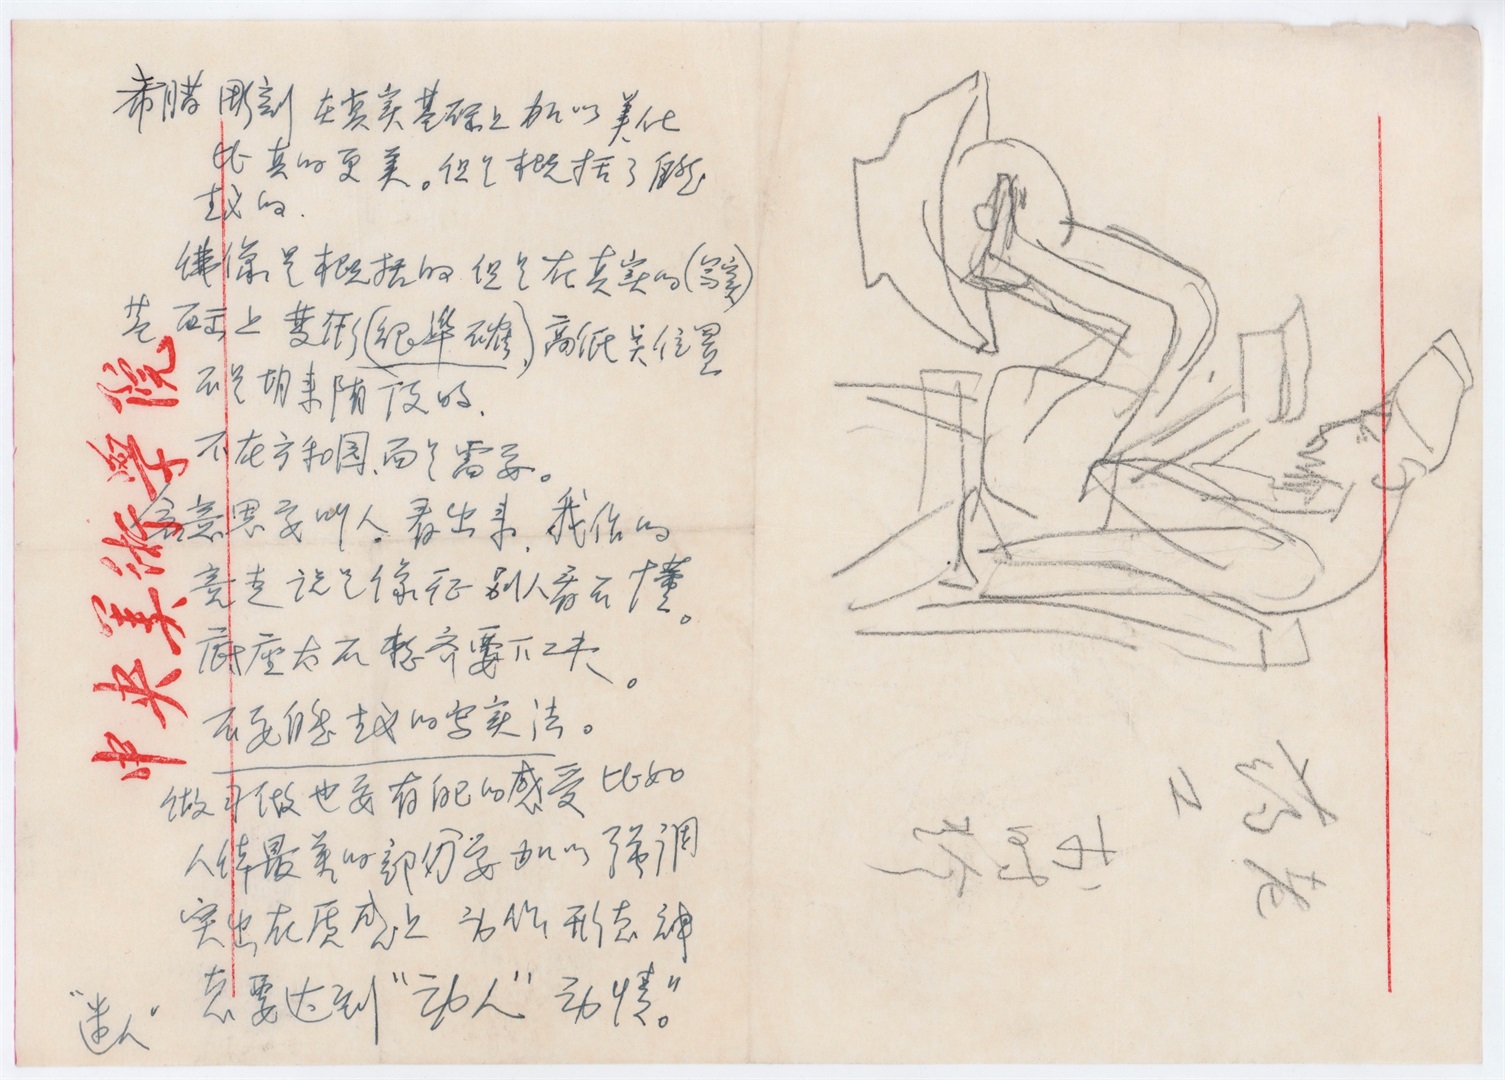 希腊彫刻在真实基础上加以美化
比真的更美。但是概括了自然
主义的.
佛像是概括的但是在真实的(写实)
基础上变街(很準确),高低哭位置
不是胡来随便的.
不在方和圆、而是需要。
意思要叫人看出来,我作的
竟走说是像征别人看不懂。
底座太不整齐要下工夫。
不要自然主义的写实法。
做习做也要有自己的感受比如
人体最美的部份要加以强调
突出在质感上动作形态神
态要达到"动人"动情"。
"迷人"
中央美術学院